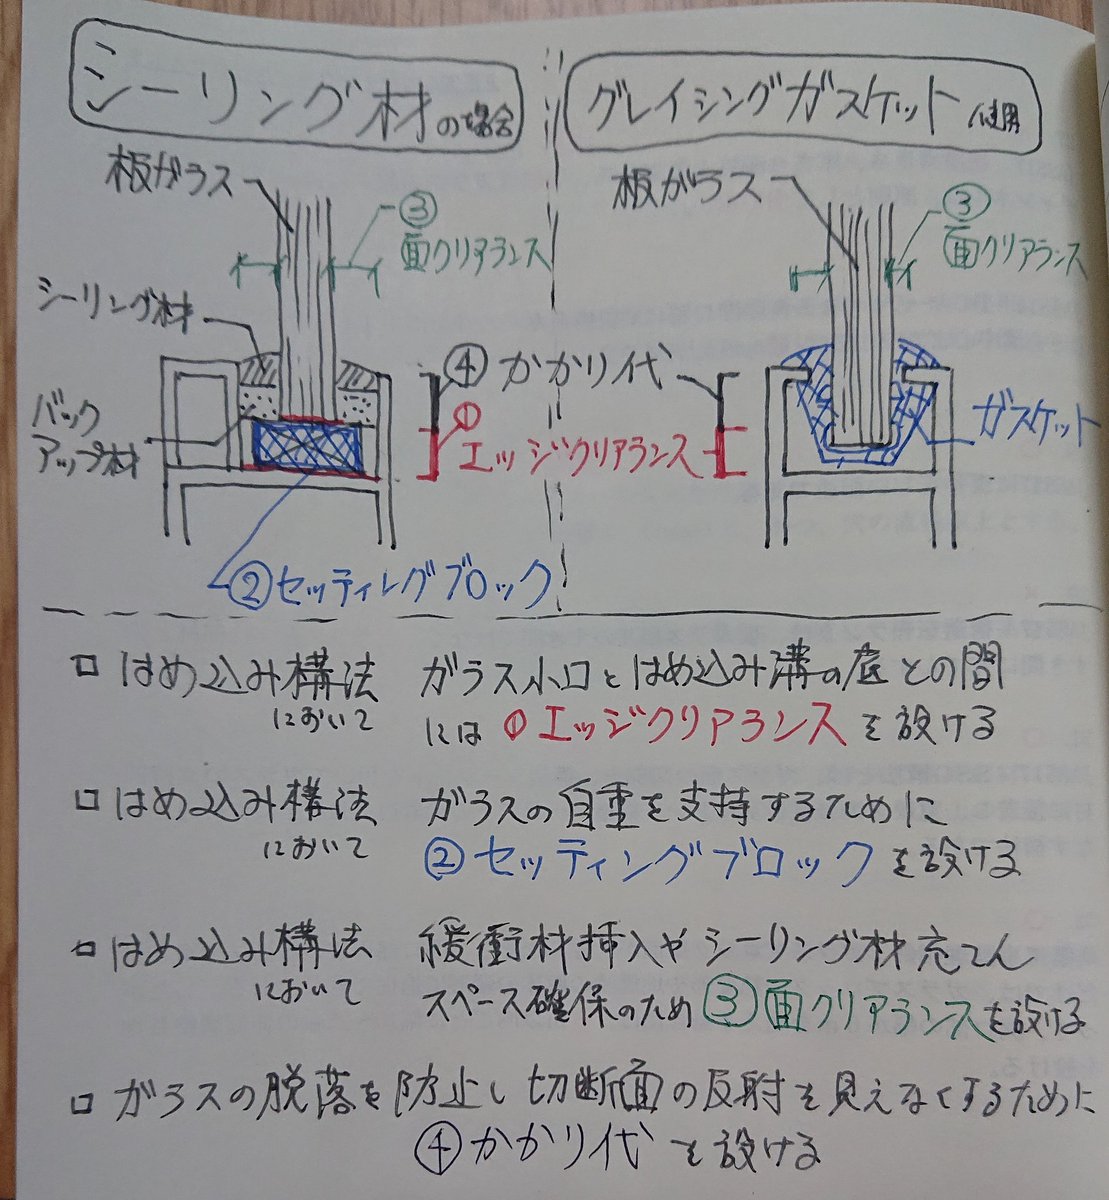 シーリング材の場合
グレイジングガスケット使用
板ガラス
③
面クリアランス
シーリング材
バック
アップ材
②セッティングブロック
④かかり代
①
エッジクリアランス
板ガラス
③
面クリアランス
ガスケット
□はめ込み構法において ガラス小口とはめ込み溝の底との間
には①エッジクリアランスを設ける
□はめ込み構法において ガラスの自重を支持するために
②セッティングブロックを設ける
□はめ込み構法において 緩衝材挿入やシーリング材充てん
スペース確保のため③面クリアランスを設ける
□ガラスの脱落を防止し切断面の反射を見えなくするために
④かかり代を設ける